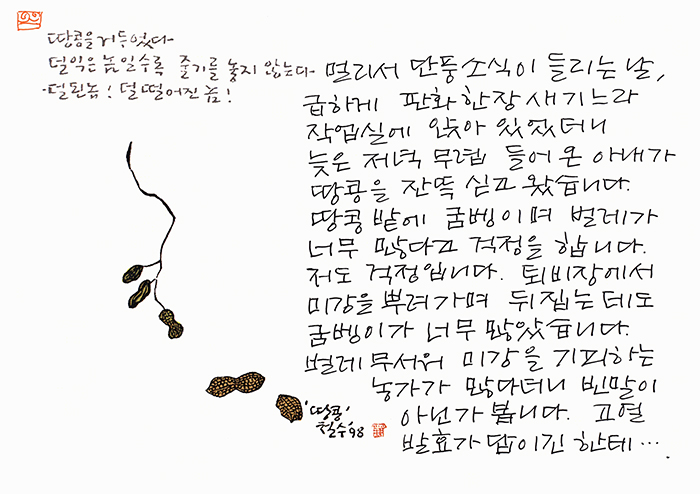 땅콩을 거두었다
덜익은 놈일수록 줄기를 놓지 않는다
덜된놈! 덜 떨어진 놈!
멀리서 단풍소식이 들리는 날,
급하게 판화 한장 새기느라
작업실에 앉아 있었더니
늦은 저녁 무렵 들어온 아내가
땅콩을 잔뜩 싣고 왔습니다.
땅콩 밭에 굼벵이며 벌레가
너무 많다고 걱정을 합니다.
저도 걱정입니다. 퇴비장에서
미강을 뿌려가며 뒤집는데도
굼벵이가 너무 많았습니다.
벌레 무서워 미강을 기피하는
농가가 많다더니 빈말이
아닌가 봅니다. 고열
발효가 답이긴 한데…
'땅콩'
철수 98